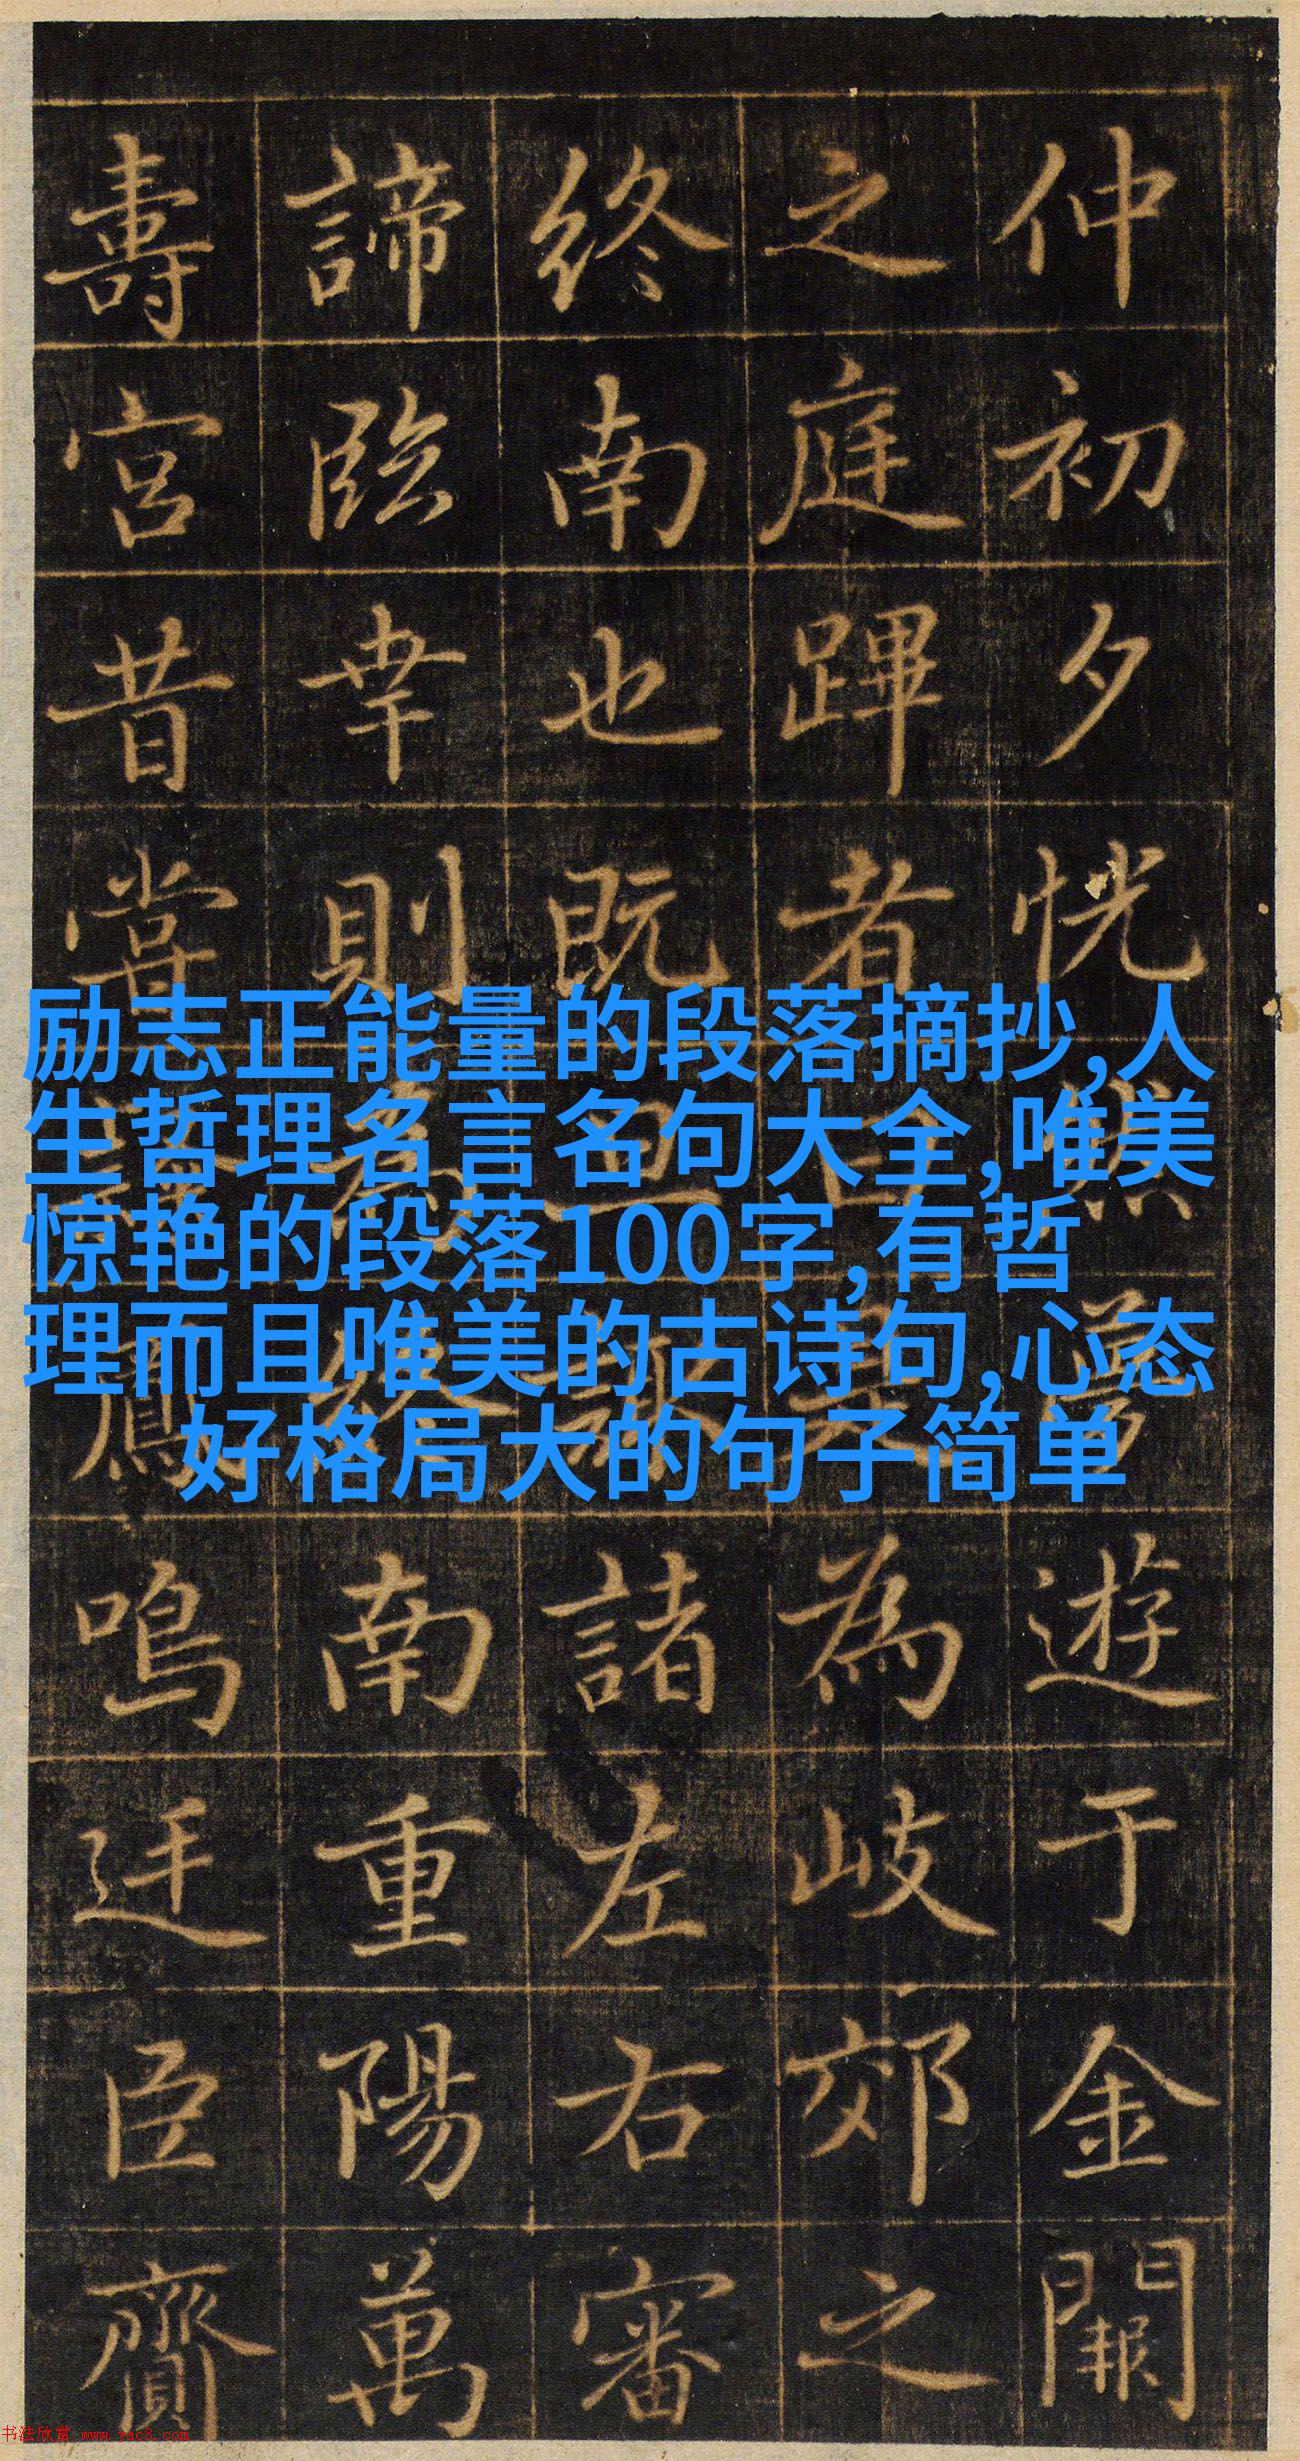 仲初夕恍然遊于金闕
之庭蹕者為岐郊之
終南也既諸左右審
諦臨幸則南重陽萬
壽宮昔嘗鳴迋臣齎
励志正能量的段落摘抄,人
生哲理名言名句大全,唯美
惊艳的段落100字,有哲
理而且唯美的古诗句,心态
好格局大的句子简单
书法欣赏 www.yac8.com